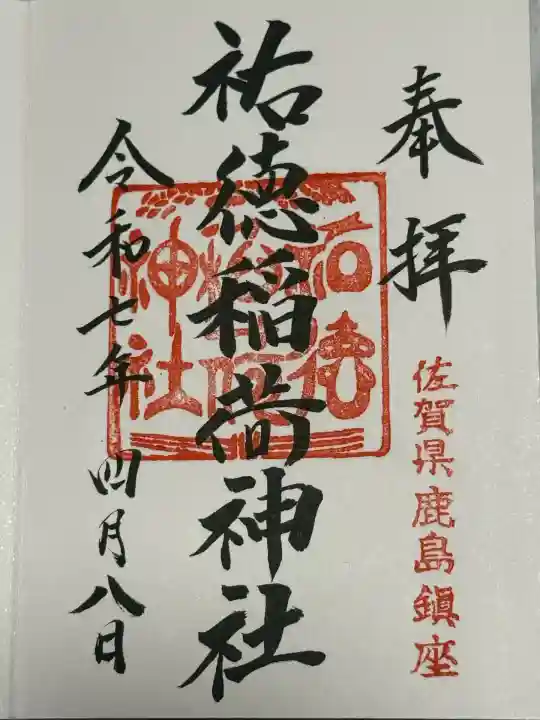 奉拝
佐賀県鹿島鎮座
祐徳稲荷神社
祐徳
稲荷
神社
令和七年四月八日